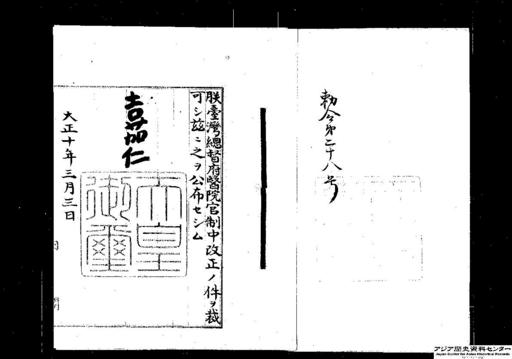 勅令第二十八号
朕臺灣總督府醫院官制中改正ノ件ヲ裁
可シ茲ニ之ヲ公布セシム
嘉仁
天皇
御璽
大正十年三月三日
内閣
アジア歴史資料センター
Japan Center for Asian Historical Records